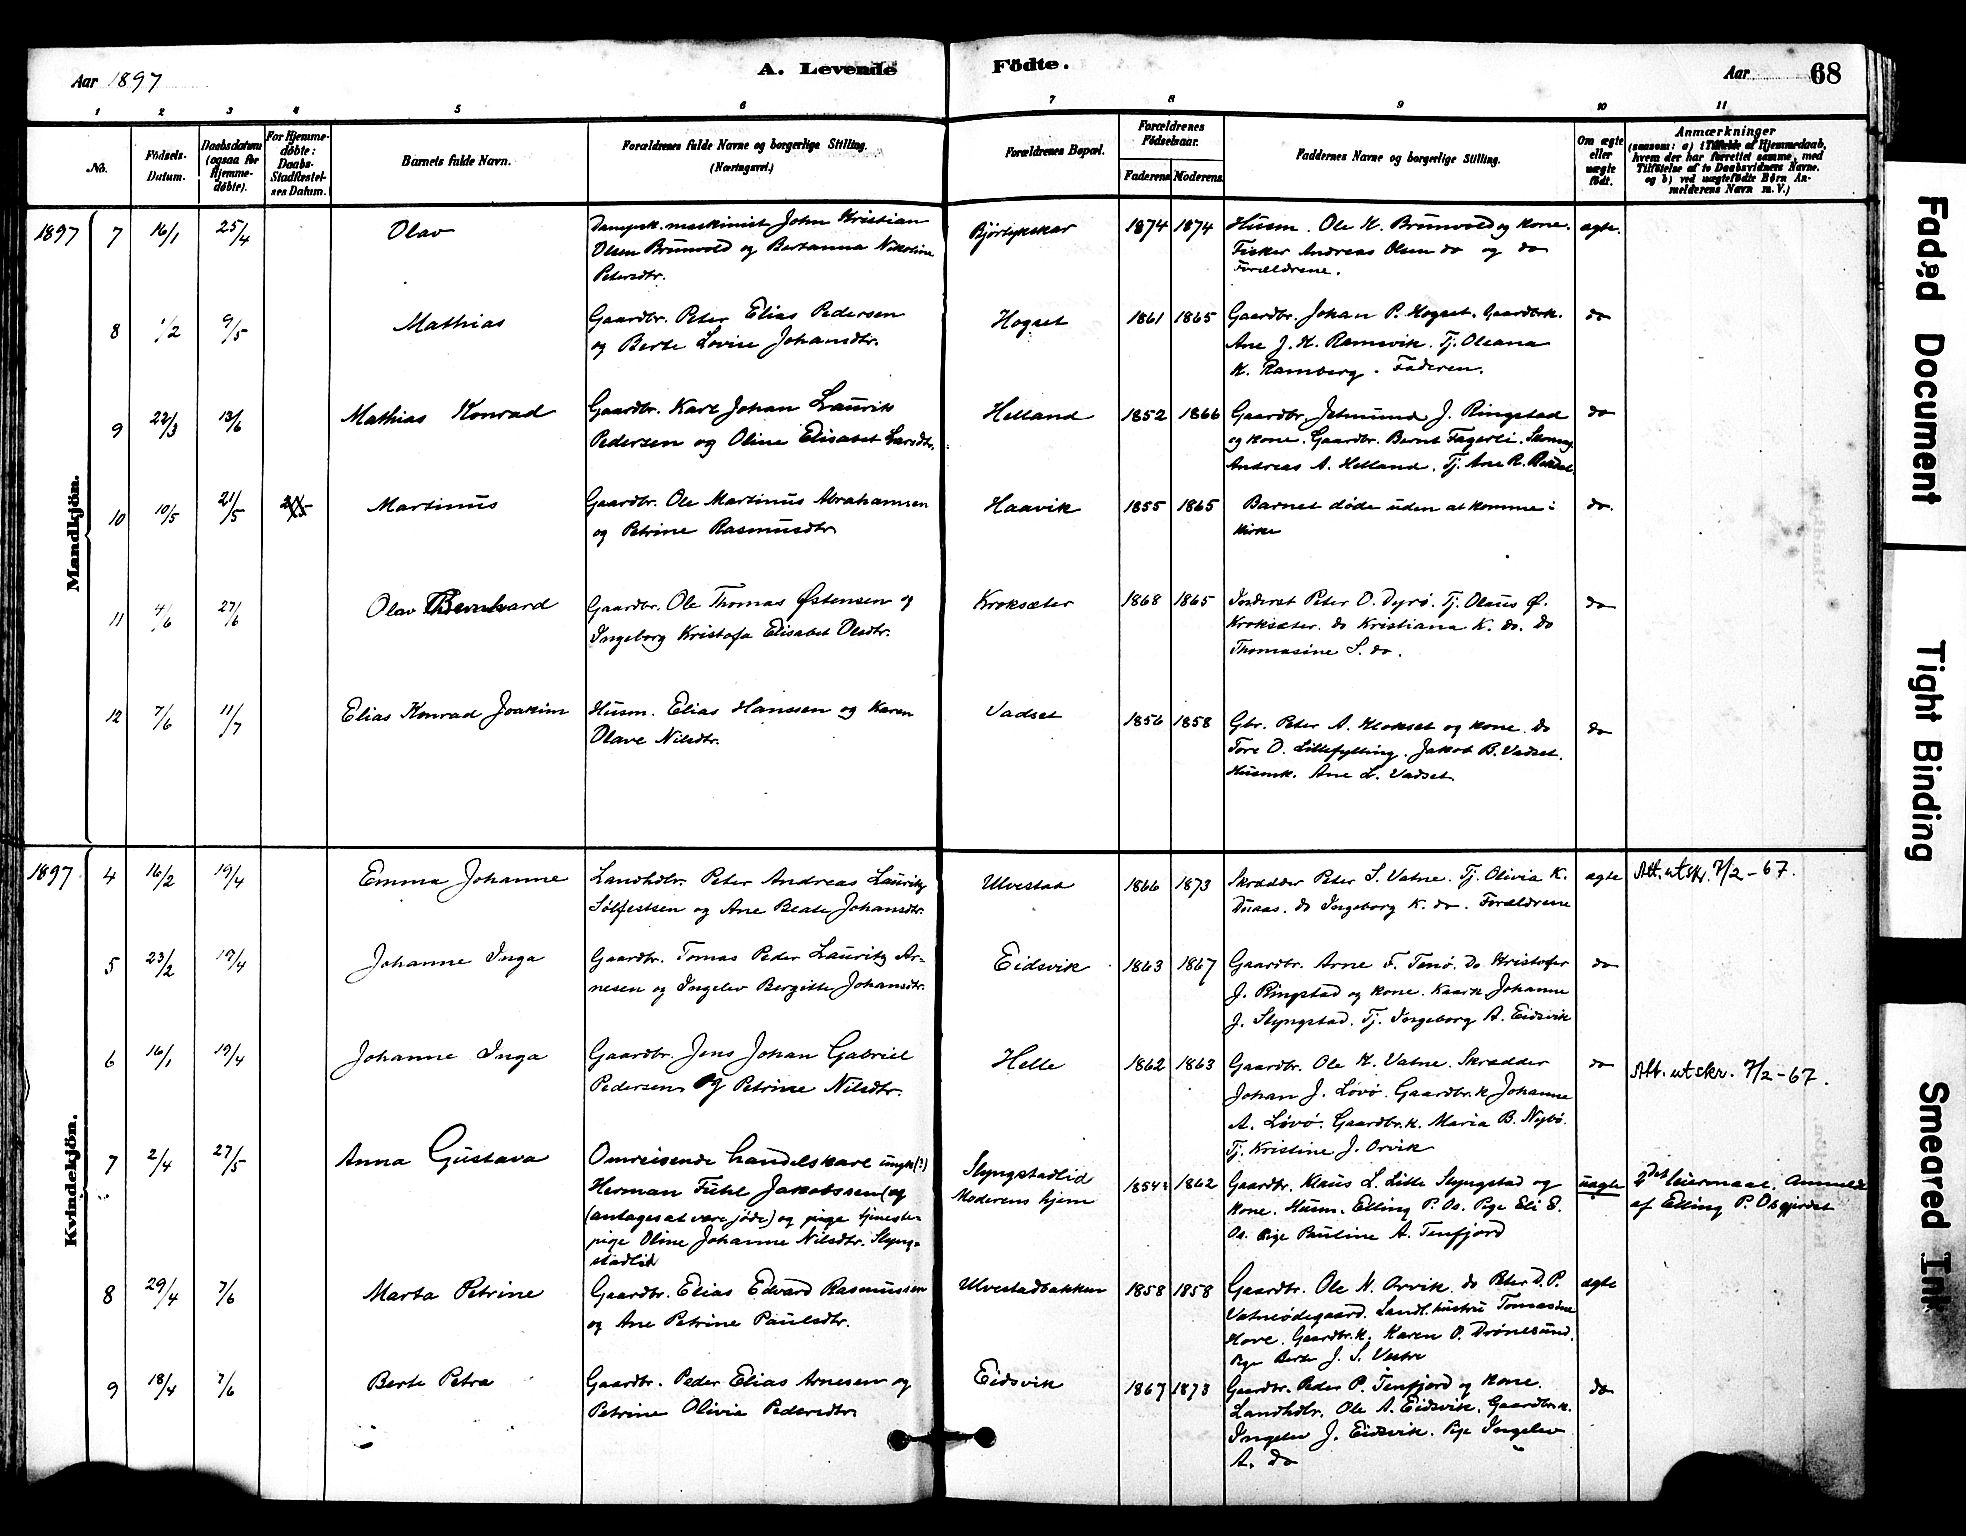 Aar 1897
A. Levende Födte.
Aar 68
1 2 3 4 5 6 7 8 9 10 11
No.
Födsels-Datum.
Daabsdatum (ogsaa for Hjemme-døbte).
For Hjemme-døbte: Daabs-Stadfæstel-ses Datum.
Barnets fulde Navn.
Forældrenes fulde Navne og borgerlige Stilling.
(Næringsvei.)
Forældrenes Bopæl.
Forældrenes Födselsaar.
Faderens Moderens
Faddernes Navne og borgerlige Stilling.
Om ægte eller uægte født.
Anmærkninger
(saasom: a) i Tilfælde af Hjemmedaab,
hvem der har forrettet samme, med
Tilføielse af to Daabsvidners Navne.
og b) ved uægtefødte Børn An-
melderens Navn m. V.)
Mandkjön.
1897 7 16/1 25/4 Olav
Dampsk. maskinist John Kristian
Olsen Brunvold og Bertanna Nikoline
Petersdtr.
1874 1874
Husm. Ole K. Brunvold og kone.
Fisker Andreas Olsen do og do
Forældrene.
ægte.
8 1/2 9/5 Mathias
Gaardbr. Peter Elias Pedersen
og Berte Lovise Johansdtr.
Hogset 1861 1865
Gaardbr. Johan P. Hogset. Gaardbrk.
Ane J. H. Ramsvik. Tj. Oleana
K. Ramberg. Faderen.
do
9 22/3 13/6 Mathias Konrad
Gaardbr. Karl Johan Laurits
Pedersen og Oline Elisabet Larsdtr.
Helland 1852 1866
Gaardbr. Jetmund J. Ringstad
og kone. Gaardbr. Bernt Fagerli.
Andreas A. Helland. Tj. Ane R.
do
10 10/5 21/5 Martinus
Gaardbr. Ole Martinus Abrahamsen
og Petrine Rasmusdtr
Haavik 1855 1865
Barnet døde uden at komme i
kirke
do.
11 4/6 27/6 Olav Bernhard
Gaardbr. Ole Thomas Østensen og
Ingeborg Kristofa Elisabet Olsdtr.
Kroksæter 1868 1865
Inderst Peter O. Dyrø. Tj. Olaus Ø.
Kroksæter. do Kristiana K. do. do
Thomasine S. do.
do
12 7/6 11/7 Elias Konrad Joakim
Husm. Elias Hanssen og Karen
Olave Nilsdtr.
Vadset 1856 1858
Gbr. Peter A. Klokset og kone. do
Tore O. Lillefylling. Jakob B. Vadset.
Husmk. Ane L. Vadset.
do
Kvindekjön.
1897 4 16/2 19/4 Emma Johanne
Landhdlr. Peter Andreas Lauritz
Sölfestsen og Ane Beate Johansdtr.
Ulvestad 1866 1873
Skrædder Peter S. Vatne. Tj. Olivia K.
do Ingeborg K. do. Forældrene
ægte Att. utskr. 7/2-67.
5 23/2 19/4 Johanne Inga
Gaardbr. Tomas Peder Lauritz Ar-
nesen og Ingelev Bergitte Johansdtr.
Eidsvik 1863 1867
Gaardbr. Arne F. Tenø. do Kristofer
J. Ringstad og kone. Johanne
J. Slyngstad. Tj. Ingeborg A. Eidsvik
do
6 16/1 19/4 Johanne Inga
Gaardbr. Jens Johan Gabriel
Pedersen og Petrine Nilsdtr.
Helle 1862 1863
Gaardbr. Ole K. Vatne. Skrædder
Johan J. Løvø. Gaardbr.k Johanne
A. Løvø. Gaardbr.k. Maria B. Nybø.
Tj. Kristine J. Orvik
do Att. utskr. 7/2-67.
7 2/4 27/5 Anna Gustava
Omreisende handelskarl ungk(?)
Herman Jakobssen (og
(antages at være jøde) og pige tjeneste-
pige Oline Johanne Nilsdtr. Slyng-
stadlid
Slyngstadlid
Moderens hjem
1854? 1862
Gaardbr. Klaus L. Lille Slyngstad og
kone. Husm. Elling P. Os. Pige Eli E.
Os. Pige Pauline A. Tenfjord
uægte
2det leiermaal. Anmeldt
af Elling P. Osgjerdet
8 29/4 7/6 Marta Petrine
Gaardbr. Elias Edvard Rasmussen
og Ane Petrine Paulsdtr.
Ulvestadbakken 1858 1858
Gaardbr. Ole N. Orvik. do Peter D. P.
Vatneødegaard. Landh. hustru Tomasine
Hove. Gaardbr.k. Karen P. Drønesund.
Pige Berte J. S. Vestre
ægte
9 18/4 7/6 Berte Petra
Gaardbr. Peder Elias Arnesen og
Petrine Olivia Pedersdtr
Eidsvik 1867 1873
Gaardbr. Peder P. Tenfjord og kone.
Landhdlr. Ole A. Eidsvik. Gaardbr.k.
Ingelev J. Eidsvik. Pige Ingelev
A. do
do
Faded Document
Tight Binding
Smeared Ink